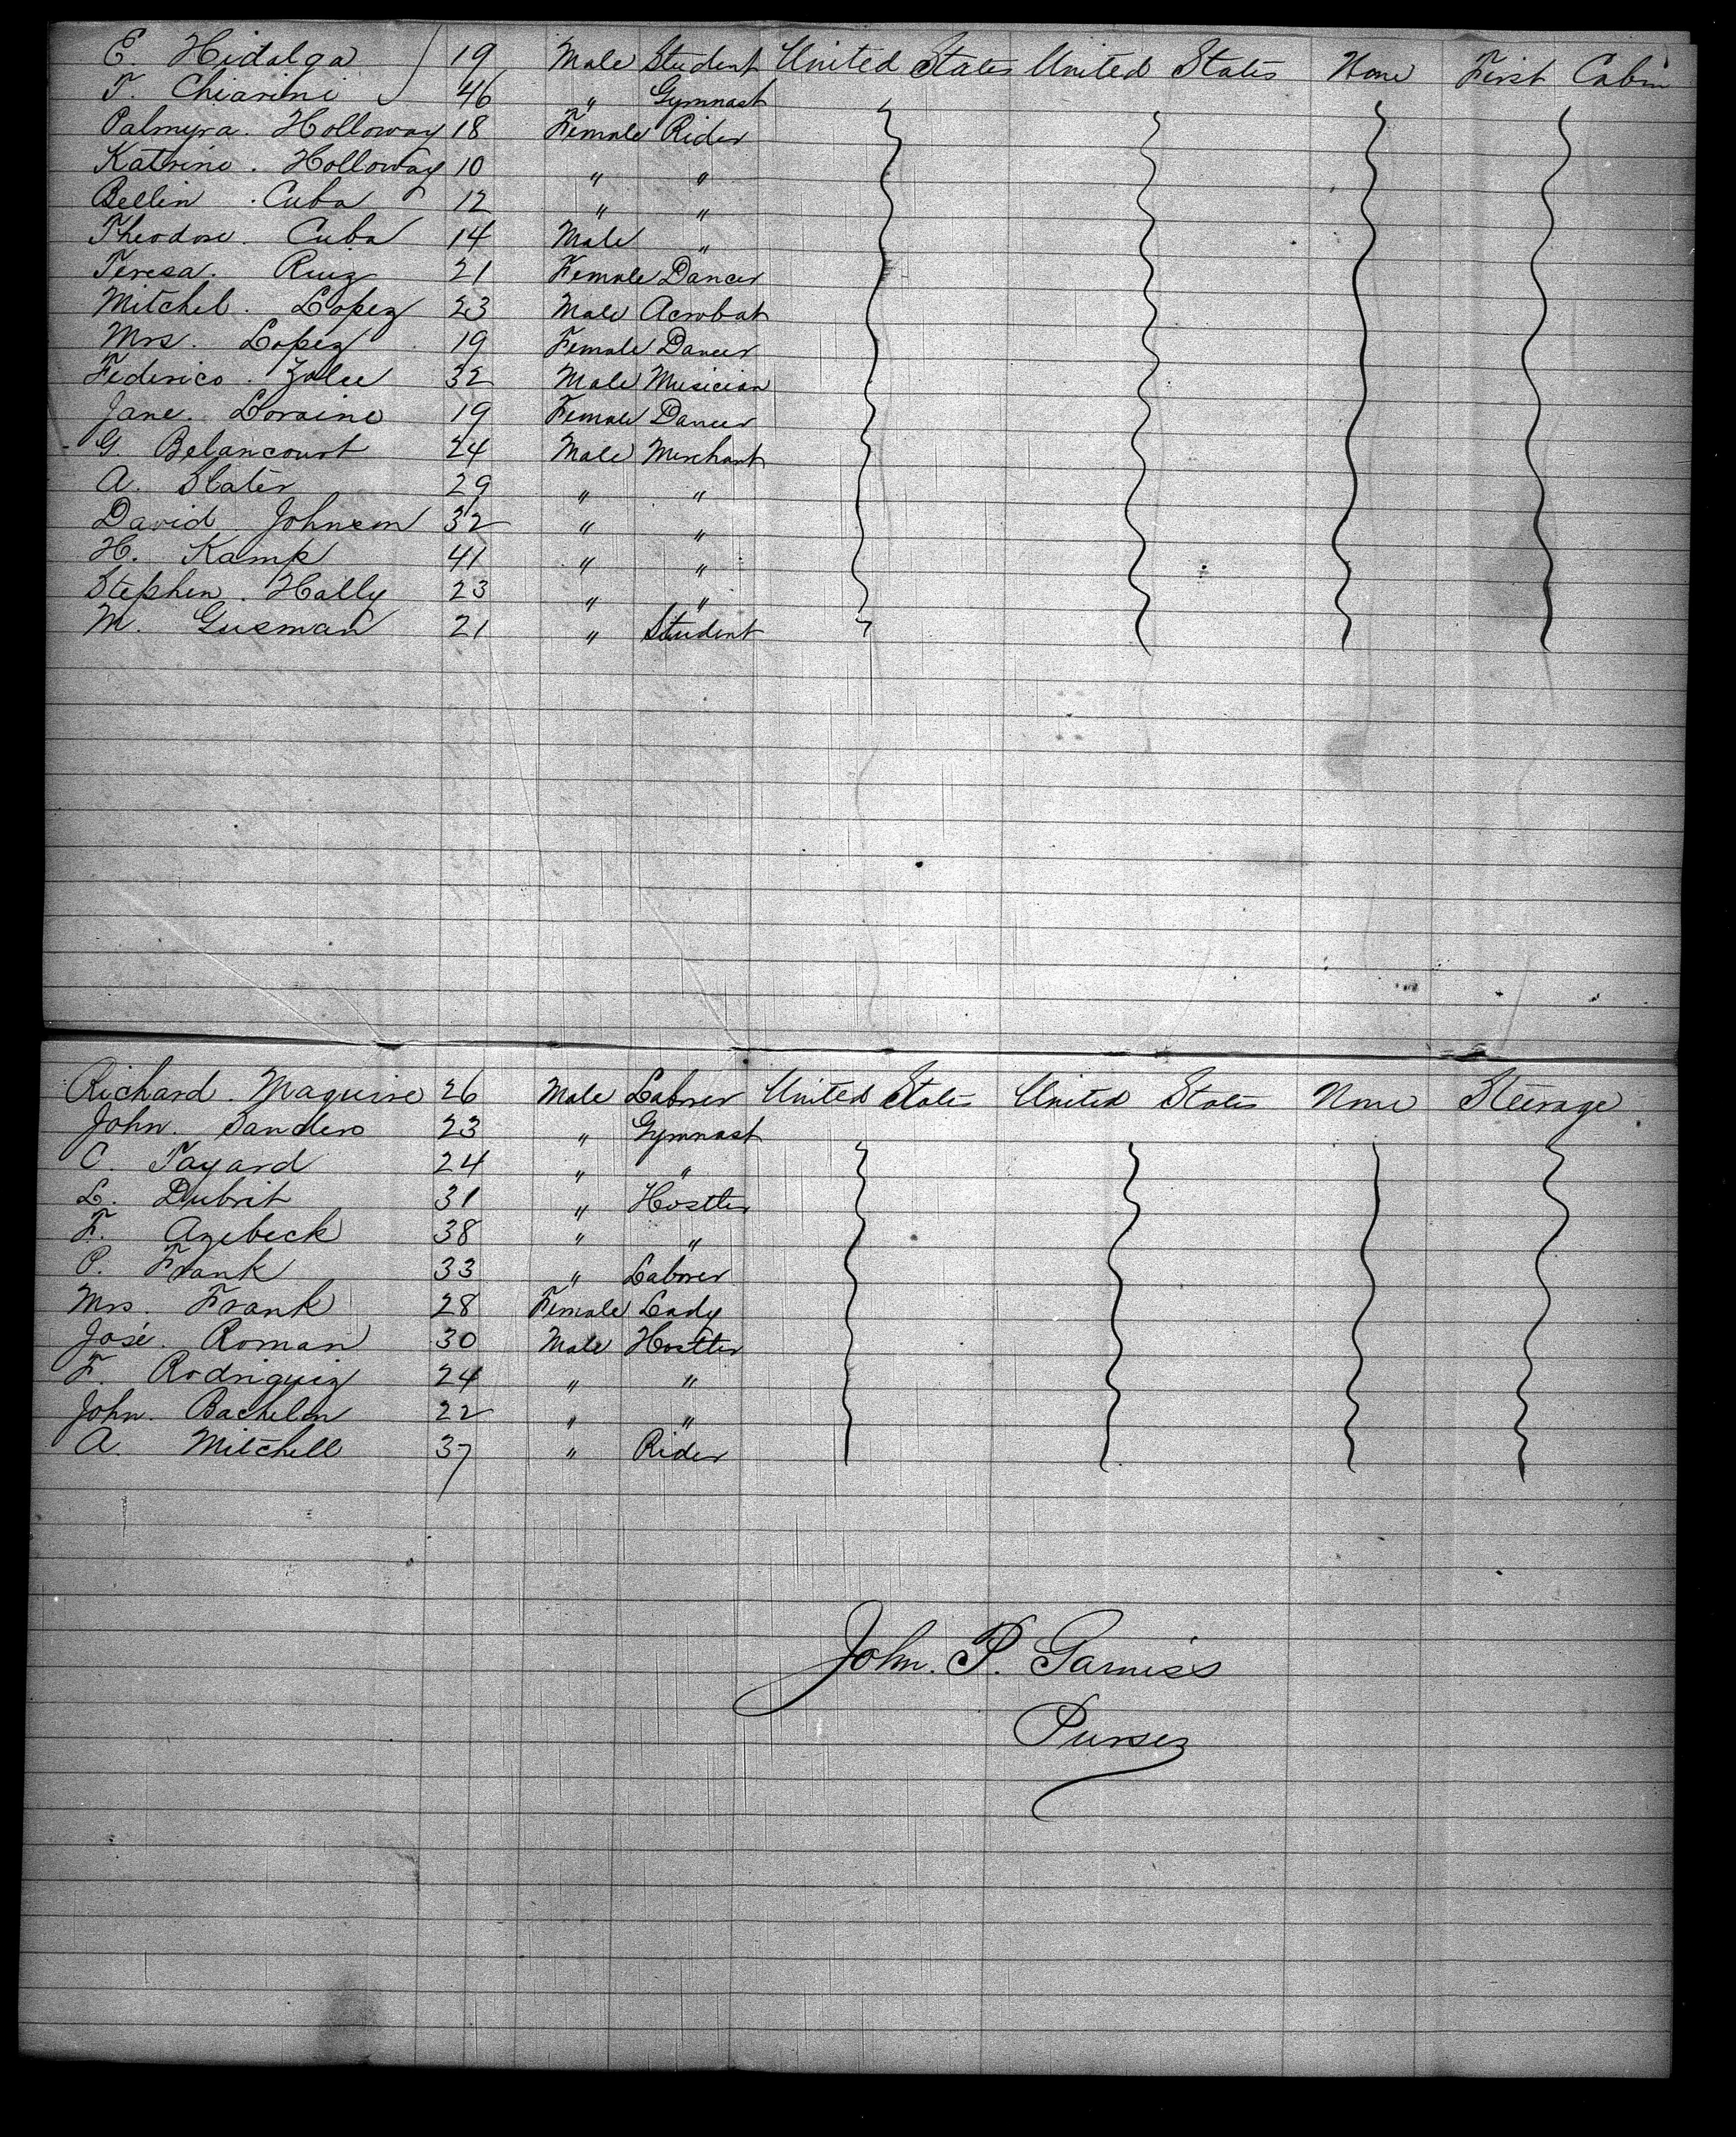 E. Hidalga 19 Male Student United States United States None First Cabin
T. Chiarini 46 " Gymnast
Palmyra. Holloway 18 Female Rider
Katrine. Holloway 10 " "
Bellin Cuba 12 " "
Theodore. Cuba 14 Male "
Teresa. Ruiz 21 Female Dancer
Mitchel. Lopez 23 Male Acrobat
Mrs. Lopez 19 Female Dancer
Federico. 32 Male Musician
Jane. Loraine 19 Female Dancer
G. Belancourt 24 Male Merchant
A. Slater 29 " "
David. Johnson 32 " "
H. Kamp 41 " "
Stephen. Hally 23 " "
M. Gusman 21 " Student
Richard. Maguire 26 Male Laborer United States United States None Steerage
John. Sanders 23 " Gymnast
C. Tayard 24 " "
L. Dubrit 31 " Hostler
F. Azebeck 38 " "
P. Frank 33 " Laborer
Mrs. Frank 28 Female Lady
José. Roman 30 Male Hostler
F. Rodriguiz 24 " "
John. 22 " "
A. Mitchell 37 " Rider
John. P. Garniss
Purser